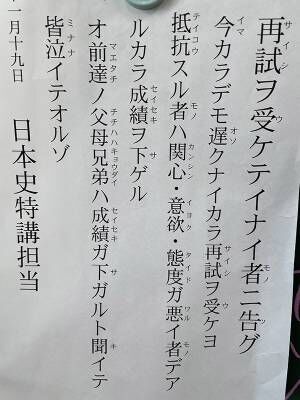 再試ヲ受ケテイナイ者ニ告グ
今カラデモ遅クナイカラ再試ヲ受ケヨ
抵抗スル者ハ関心・意欲・態度ガ悪イ者デア
ルカラ成績ヲ下ゲル
オ前達ノ父母兄弟ハ成績ガ下ガルト聞イテ
皆泣イテオルゾ
一月十九日　日本史特講担当